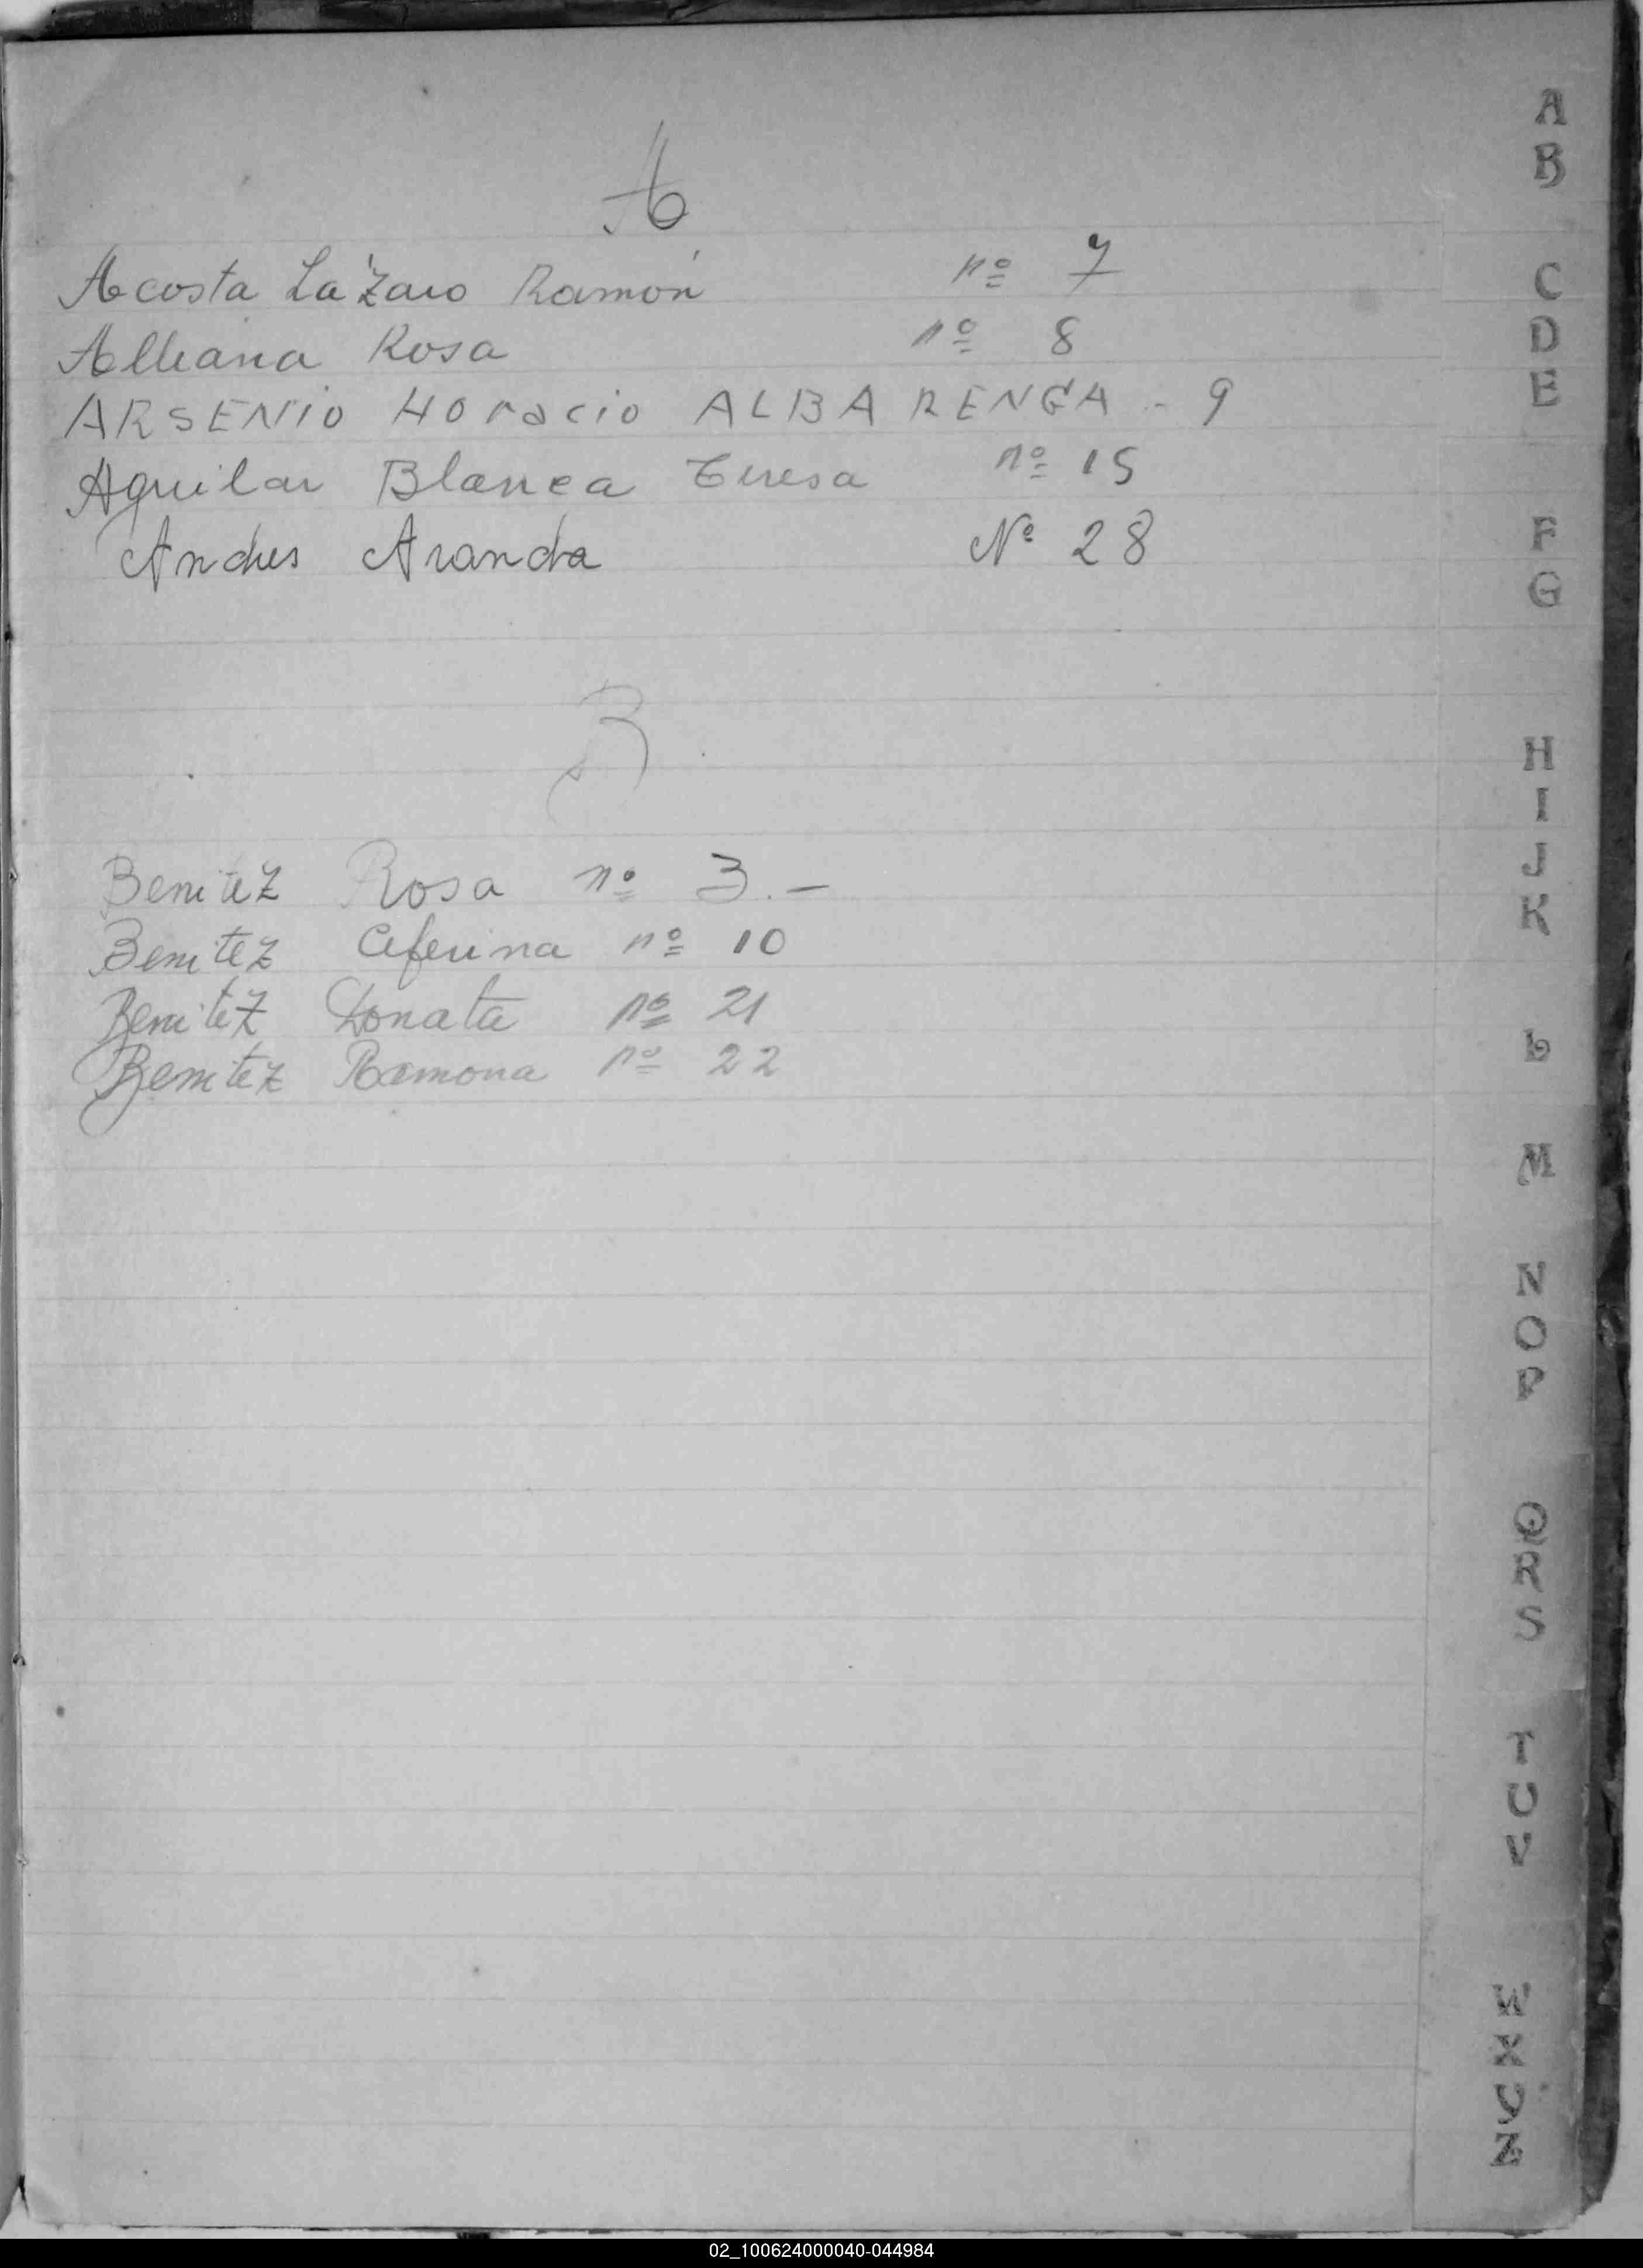 A
Acosta Lázaro Ramón nº 7
Rosa nº 8
ARSENIO HOracio ALBARENGA - 9
Aguilar Blanca Teresa nº 15
Andres Aranda Nº 28
B
Benitez Rosa nº 3.-
Benitez Ceferina nº 10
Benitez Donata nº 21
Benitez Ramona nº 22
A
B
C
D
E
F
G
H
I
J
K
L
M
N
O
P
Q
R
S
T
U
V
W
X
Y
Z
02_100624000040-044984